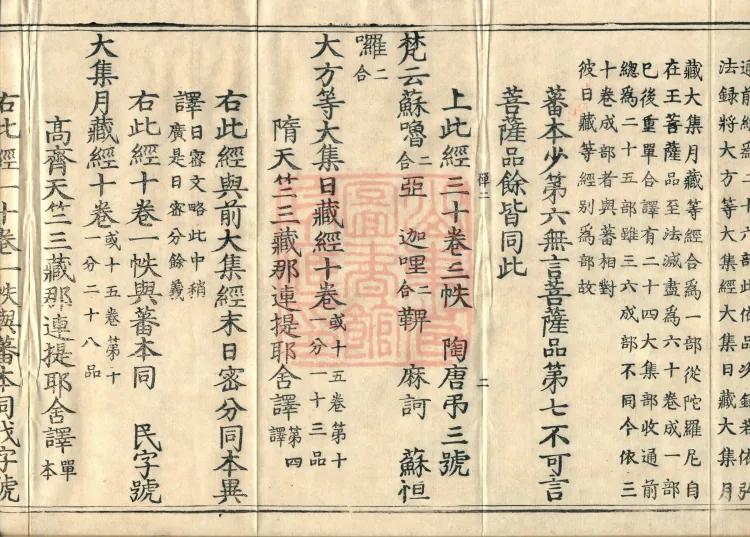 通前經爲二十六部此依品次錄若依弥
法録將大方等大集經大集日藏大集月
藏大集月藏等經合爲一部從陀羅尼自
在王菩薩品至法滅盡爲六十卷成一部
已後重單合譯有二十四大集部收通前
總爲二十五部雖三六成部不同今依三
十卷成部者與蕃相對
彼日藏等經別爲部故
蕃本少第六無言菩薩品第七不可言
菩薩品餘皆同此
上此經三十卷三帙 陶唐弔三號
梵云蘇嚕二合亞 迦哩二合鞞 麻訶 蘇怛
囉二合
大方等大集日藏經十卷或十五卷第十一分一十三品
隋天竺三藏那連提耶舍譯第四譯
右此經與前大集經末日密分同本異
譯日密文略此中稍廣是日密分餘義
右此經十卷一帙與蕃本同 民字號
大集月藏經十卷或十五卷第十一分二十八品
高齊天竺三藏那連提耶舍譯單本
右此經一十卷一帙與蕃本同伐字號
禪二
二